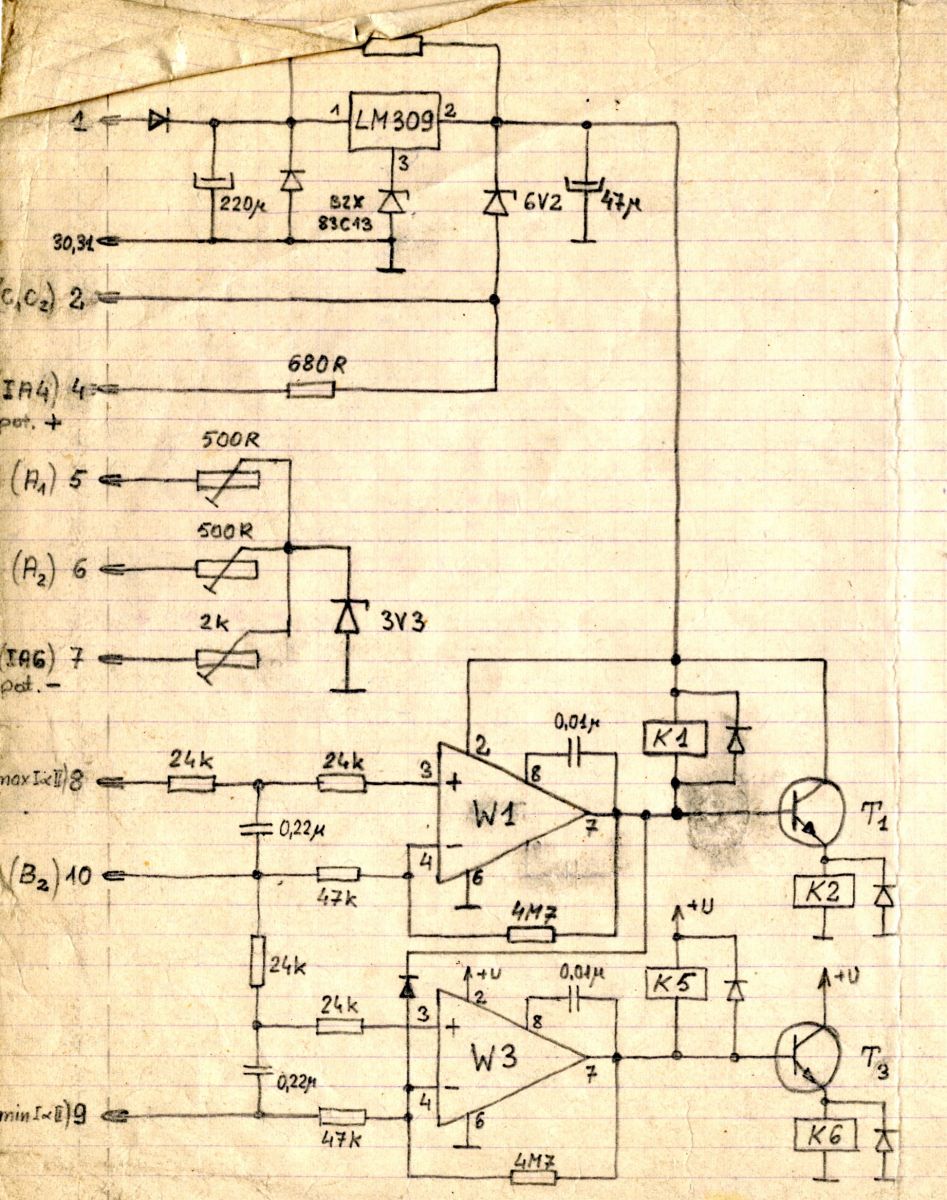 1
1 LM309 2
3
220µ
BZX
83C13
6V2
47µ
30,31
(C₁C₂) 2
680R
IA4) 4
pot. +
500R
(A₁) 5
500R
(A₂) 6
2k
3V3
(IA6) 7
pot. –
0,01µ
K1
2
8
24k
24k
max I∝II) 8
3
+
W1
7
T₁
0,22µ
4
–
6
(B₂) 10
47k
K2
4M7
+U
24k
+U
0,01µ
K5
+U
2
24k
3
+
8
W3
7
T₃
0,22µ
–
4
6
min I∝II) 9
47k
K6
4M7